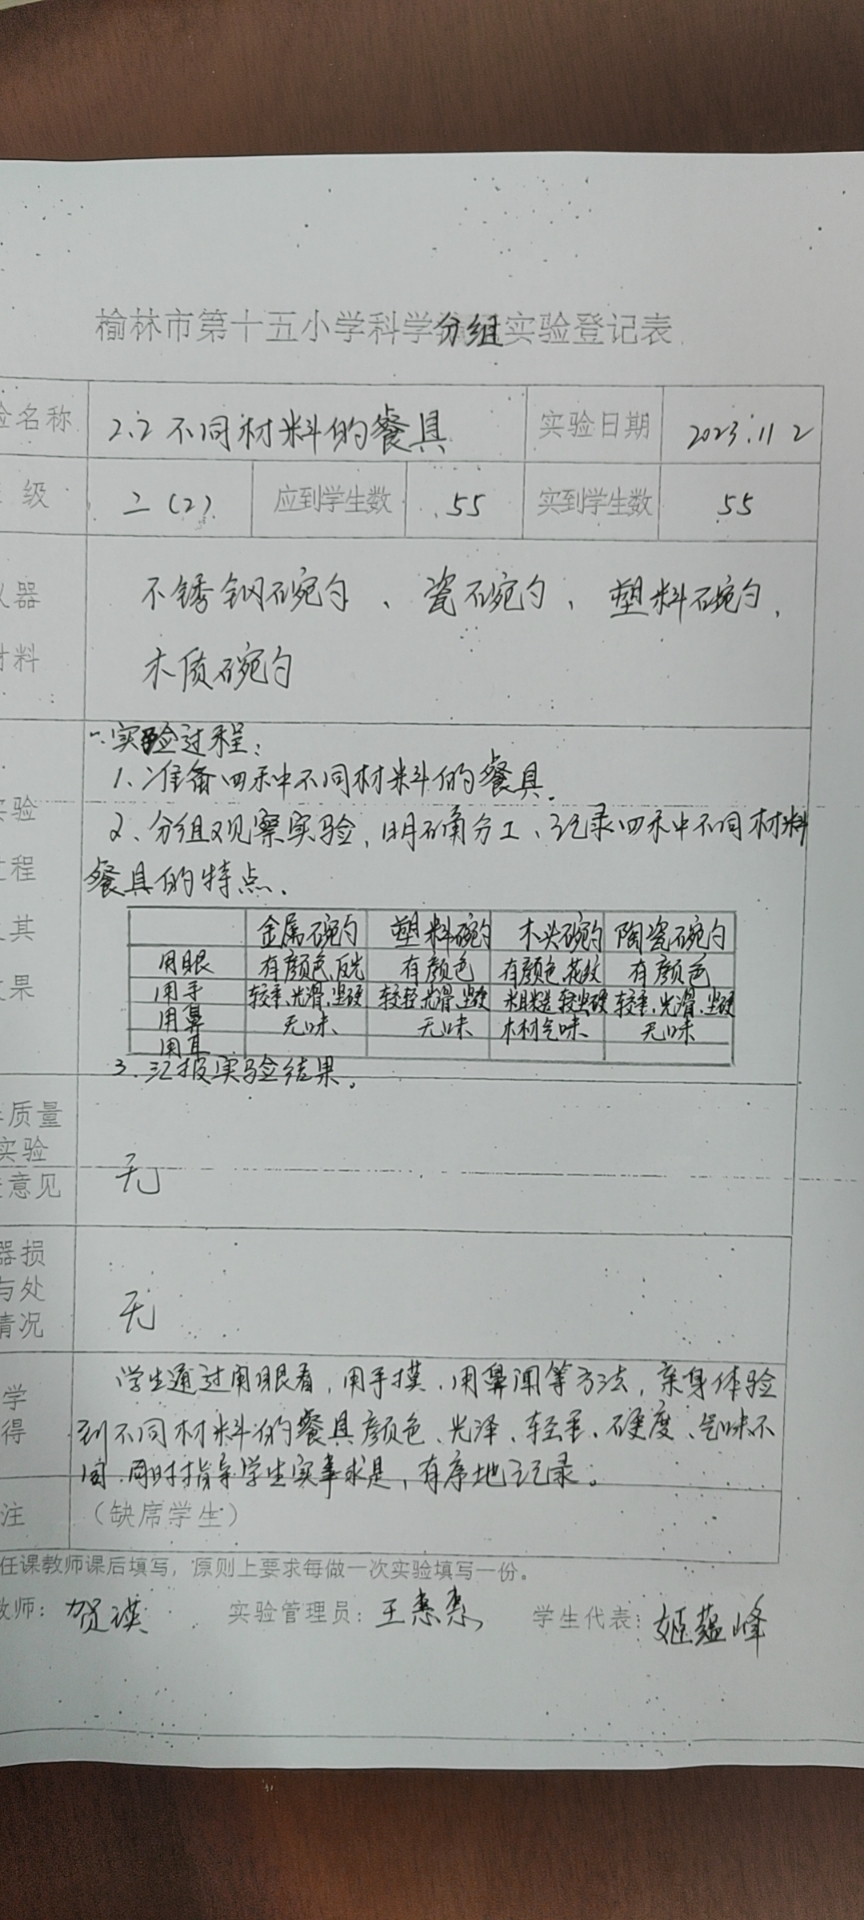 榆林市第十五小学科学分组实验登记表
验名称 2.2 不同材料的餐具 实验日期 2023.11 2
级 二(2) 应到学生数 55 实到学生数 55
仪器 不锈钢碗勺、瓷碗勺、塑料碗勺、
材料 木质碗勺
一、实验过程:
1、准备四种不同材料的餐具.
实验 2、分组观察实验,明确分工、记录四种不同材料
过程 餐具的特点.
及其 金属碗勺 塑料碗勺 木头碗勺 陶瓷碗勺
用眼 有颜色、反光 有颜色 有颜色、花纹 有颜色
效果 用手 较重、光滑、坚硬 较轻、光滑、坚硬 粗糙、较坚硬 较重、光滑、坚硬
用鼻 无味、 无味、 木材气味、 无味
用耳
3、汇报实验结果。
质量
实验 无
意见
器损
与处 无
情况
学生通过用眼看,用手摸、用鼻闻等方法,亲身体验
学 到不同材料的餐具颜色、光泽、轻重、硬度、气味不
得 同.同时指导学生实事求是,有序地记录。
注 (缺席学生)
任课教师课后填写,原则上要求每做一次实验填写一份。
教师: 贺 实验管理员: 王惠惠 学生代表: 姬蕴峰